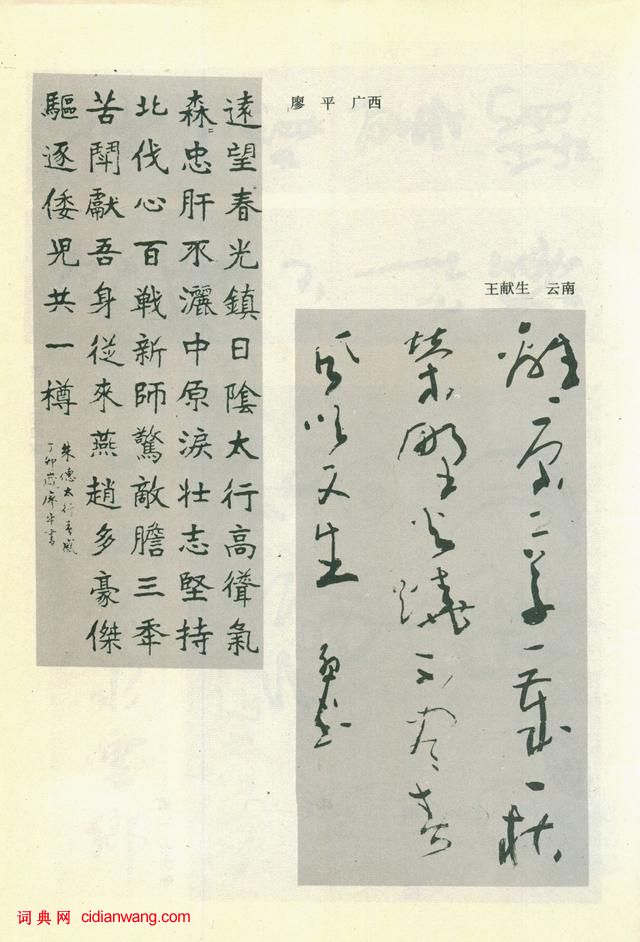 廖 平 广西
遠望春光鎮日陰太行高聳氣
森〻忠肝不灑中原淚壯志堅持
北伐心百戰新師驚敵膽三秊
苦鬪獻吾身從來燕趙多豪傑
驅逐倭児共一樽
朱德太行春感
丁卯歲廖平書
王献生 云南
離〻原上草一歲一枯
榮野火燒不盡春
風吹又生
词典网 cidianwang.com